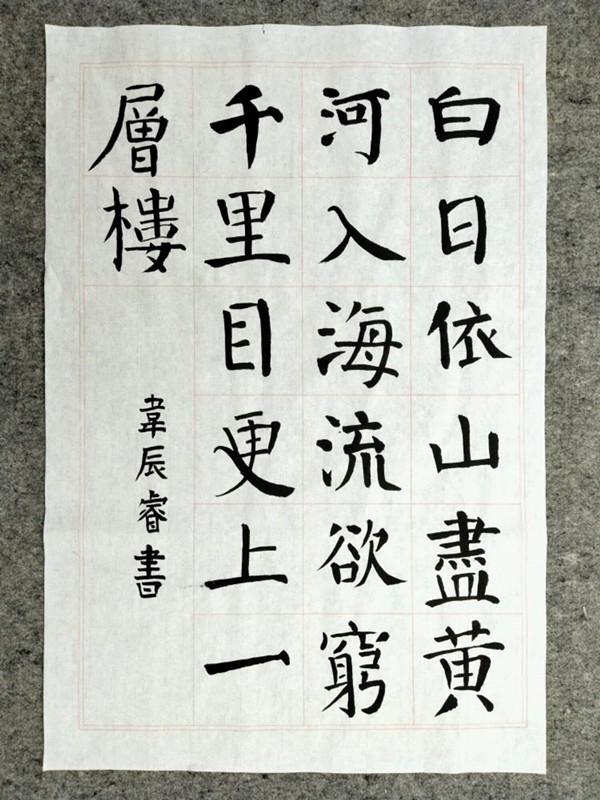 白日依山盡黄
河入海流欲窮
千里目更上一
層樓
韋辰睿書